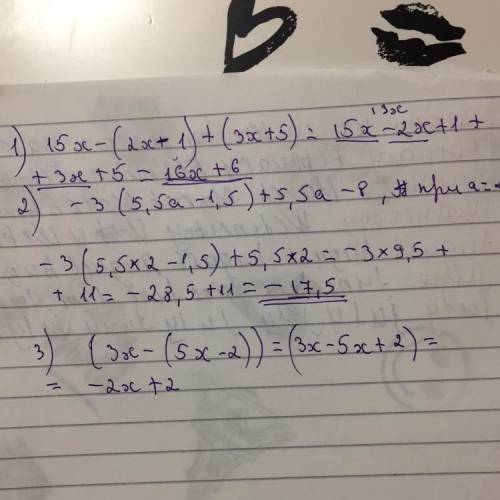 В
13x
1) 15x-(2x+1)+(3x+5)=15x-2x+1+
+3x+5=16x+6
2) -3(5,5a-1,5)+5,5a-8, при a=
-3(5,5×2-1,5)+5,5×2=-3×9,5+
+11=-28,5+11=-17,5
3) (3x-(5x-2))=(3x-5x+2)=
=-2x+2